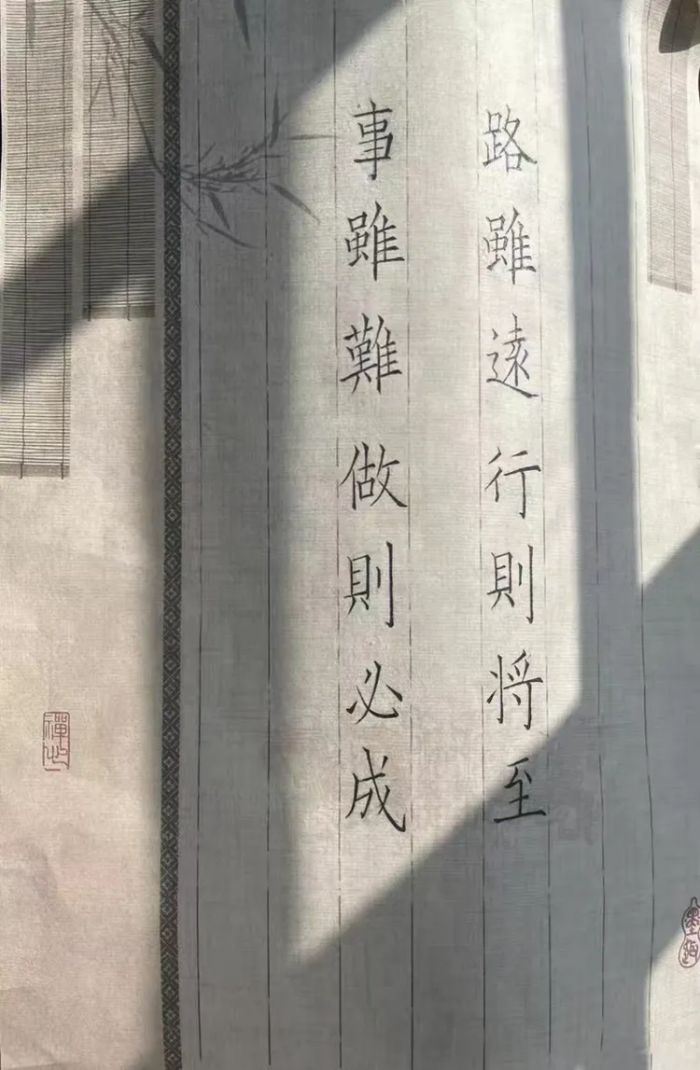 路雖遠行則将至
事雖難做則必成
禪心